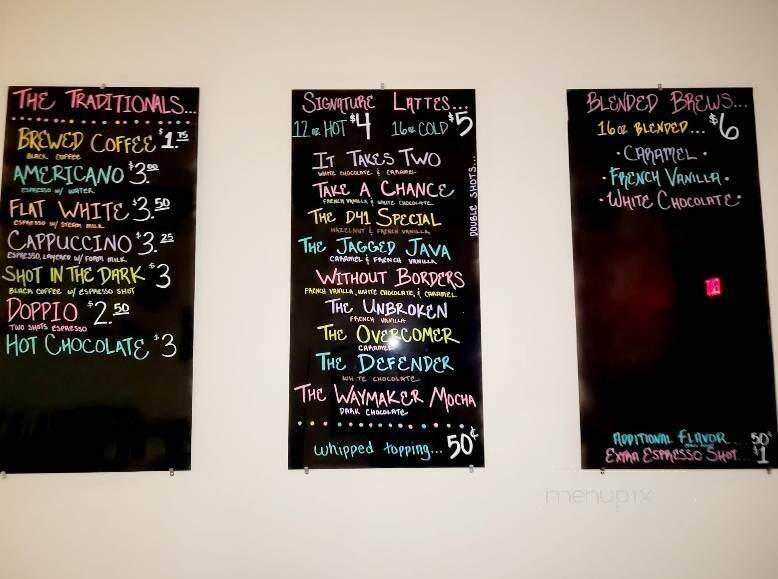 THE TRADITIONALS...
BREWED COFFEE $1.75
BLACK COFFEE
AMERICANO $3.00
ESPRESSO W/ WATER
FLAT WHITE $3.50
ESPRESSO W/ STEAM MILK
CAPPUCCINO $3.25
ESPRESSO, LAYERED W/ FOAM MILK
SHOT IN THE DARK $3
BLACK COFFEE W/ ESPRESSO SHOT
DOPPIO $2.50
TWO SHOTS ESPRESSO
HOT CHOCOLATE $3
SIGNATURE LATTES...
12 oz HOT $4 16 oz COLD $5
DOUBLE SHOTS...
IT TAKES TWO
WHITE CHOCOLATE & CARAMEL
TAKE A CHANCE
FRENCH VANILLA & WHITE CHOCOLATE
THE D41 SPECIAL
HAZELNUT & FRENCH VANILLA
THE JAGGED JAVA
CARAMEL & FRENCH VANILLA
WITHOUT BORDERS
FRENCH VANILLA, WHITE CHOCOLATE, & CARAMEL
THE UNBROKEN
FRENCH VANILLA
THE OVERCOMER
CARAMEL
THE DEFENDER
WHITE CHOCOLATE
THE WAYMAKER MOCHA
DARK CHOCOLATE
whipped topping... 50¢
BLENDED BREWS...
16 oz BLENDED... $6
• CARAMEL •
FRENCH VANILLA •
• WHITE CHOCOLATE •
ADDITIONAL FLAVOR... 50¢
EXTRA ESPRESSO SHOT... $1
menupix